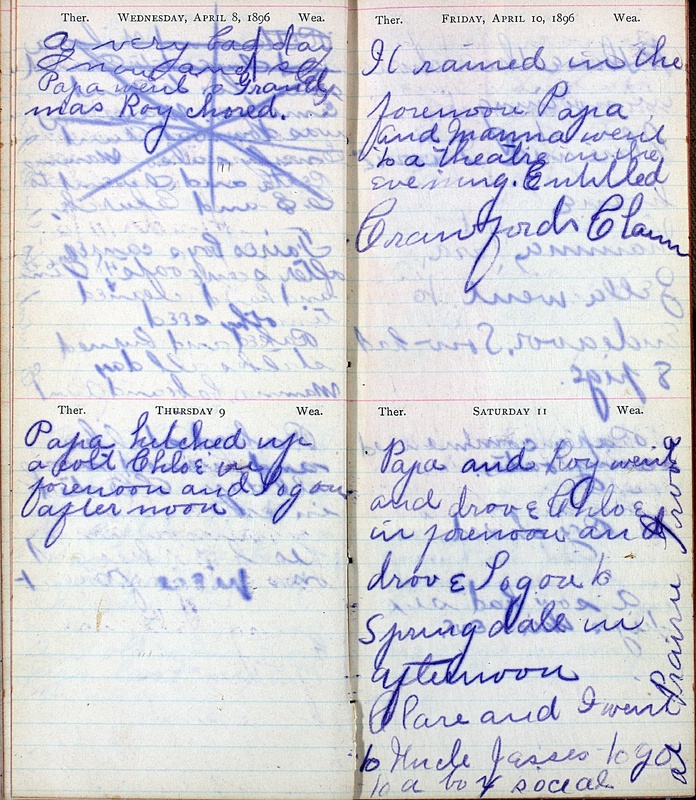 Ther. WEDNESDAY, APRIL 8, 1896 Wea.
A very bad day
Snow and
Papa went to Grand
mas Roy chored.
Ther. THURSDAY 9 Wea.
Papa hitched up
a colt Chloe in
forenoon and Logan
afternoon
Ther. FRIDAY, APRIL 10, 1896 Wea.
It rained in the
forenoon Papa
and mamma went
to a theatre in the
evening. Entitled
Crawfords Claim
Ther. SATURDAY 11 Wea.
Papa and Roy went
and drove Chloe
in forenoon and
drove Logan to
Springdale in
afternoon
Clare and I went
to Uncle Jesses to go
to a box social
at Prairie